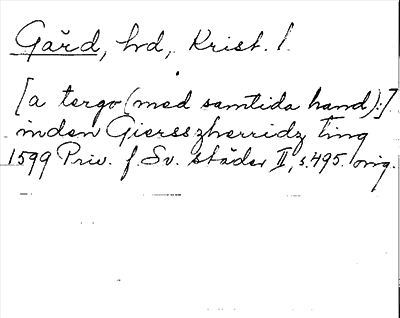 Gärd, hd, Krist. l.
[a tergo (med samtida hand):]
inden Giersszherridz Ting
1599 Priv. f. Sv. städer II, s. 495. orig.